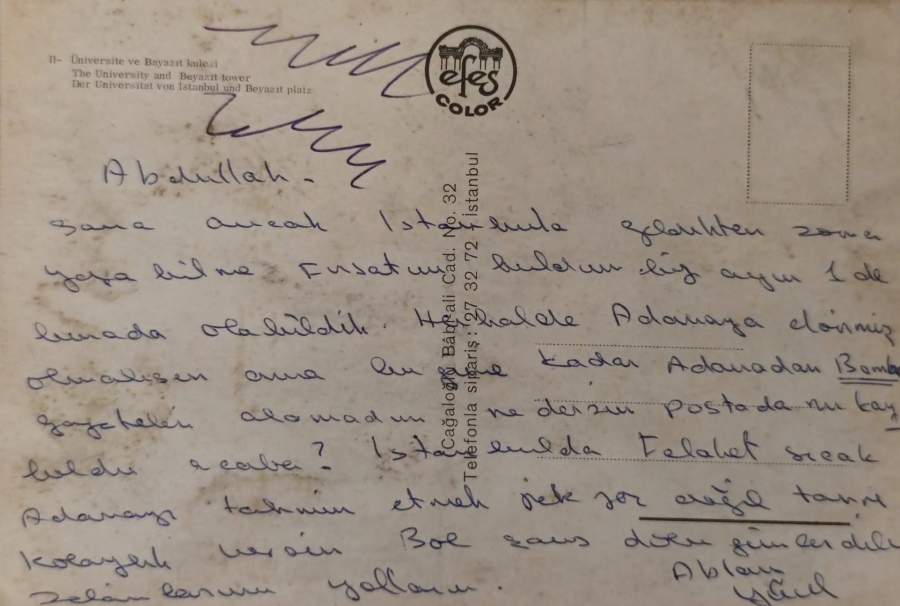 11- Üniversite ve Bayazıt kulesi
The University and Beyazıt tower
Der Universitat von İstanbul und Beyazıt platz
efes
COLOR
Cağaloğlu Bâbıali Cad. No. 32
Telefonla sipariş: 27 32 72 İstanbul
Abdullah -
Sana ancak İstanbula geldikten zaman
yaza bilme Fırsatını buldum biz ayın 1 de
burada olabildik. Herhalde Adanaya dönmüş
olmalısın ama bu güne kadar Adanadan
gazeteleri alamadım ne dersin postada mı kay
boldu acaba? İstanbulda Felaket sıcak
Adanayı tahmin etmek pek zor değil tanrı
kolaylık versin Bol şans dolu günler dile
selamlarımı yollarım.
Ablan